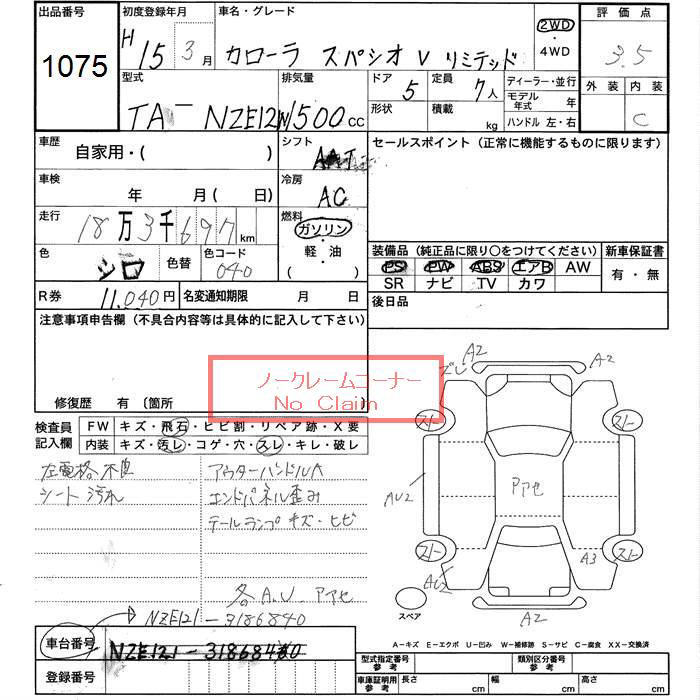 出品番号 初度登録年月 車名・グレード 評価点
1075 H 15 3 月 カローラ スパシオ V リミテッド 2WD ・4WD 3.5
型式 排気量 ドア 定員 ディーラー・並行 外装 内装
TA NZE121N 1500 cc 5 7人 モデル年式 年 C
形状 積載 kg ハンドル 左・右
車歴 シフト セールスポイント(正常に機能するものに限ります)
自家用・( ) AT
車検 冷房
年 月(日) AC
走行 燃料
18万3千697km ガソリン・軽油・( )
色 色替 色コード 装備品(純正品に限り○をつけてください) 新車保証書
シロ 040 PS PW ABS エアB AW 有・無
SR ナビ TV カワ
R券 11,040円 名変通知期限 月 日 後日品
注意事項申告欄(不具合内容等は具体的に記入して下さい)
ノークレームコーナー
No Claim
修復歴 有 〔箇所
検査員記入欄 FW キズ・飛石・ヒビ割・リペア跡・X要
内装 キズ・汚レ・コゲ・穴・スレ・キレ・破レ
左電格不良 アウターハンドルA
シート汚れ エンドパネル歪み
テールランプキズ・ヒビ
各A.U アアセ
NZE121-3186840
車台番号 NZE121-3186840
登録番号
ズレ A2 A2
スト スト
AU2 アアセ
スト スト
AU2 A3
スペア A2
A-キズ E-エクボ U-凹み W-補修跡 S-サビ C-腐食 XX-交換済
型式指定番号参考 類別区分番号参考
車庫証明用参考 長さ cm 幅 cm 高さ cm